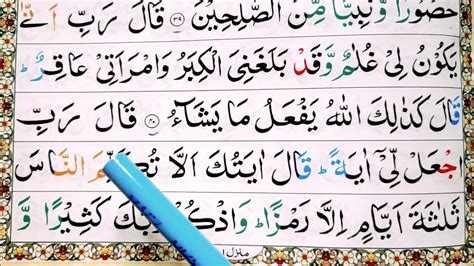 حَصُوْرًا وَّنَبِيًّا مِّنَ الصّٰلِحِيْنَ ﴿۳۹﴾ قَالَ رَبِّ اَنّٰى
يَكُوْنُ لِىْ غُلٰمٌ وَّقَدْ بَلَغَنِىَ الْكِبَرُ وَامْرَاَتِىْ عَاقِرٌ ؕ
قَالَ كَذٰلِكَ اللّٰهُ يَفْعَلُ مَا يَشَآءُ ﴿۴۰﴾ قَالَ رَبِّ
اجْعَلْ لِّىْۤ اٰيَةً ؕ قَالَ اٰيَتُكَ اَلَّا تُكَلِّمَ النَّاسَ
ثَلٰثَةَ اَيَّامٍ اِلَّا رَمْزًا ؕ وَاذْكُرْ رَّبَّكَ كَثِيْرًا وَّ
منزل ۱